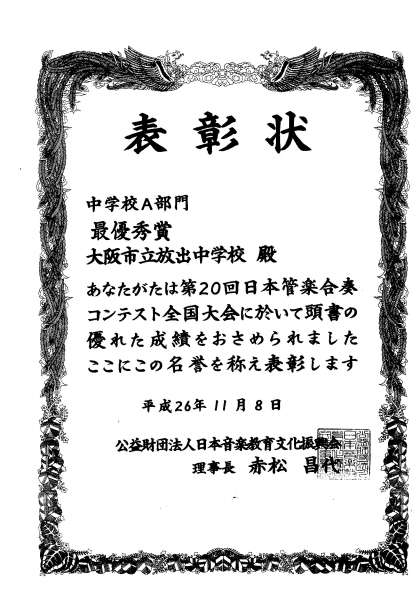 表彰状
中学校A部門
最優秀賞
大阪市立放出中学校 殿
あなたがたは第20回日本管楽合奏
コンテスト全国大会に於いて頭書の
優れた成績をおさめられました
ここにこの名誉を称え表彰します
平成26年11月8日
公益財団法人日本音楽教育文化振興会
理事長 赤松 昌代